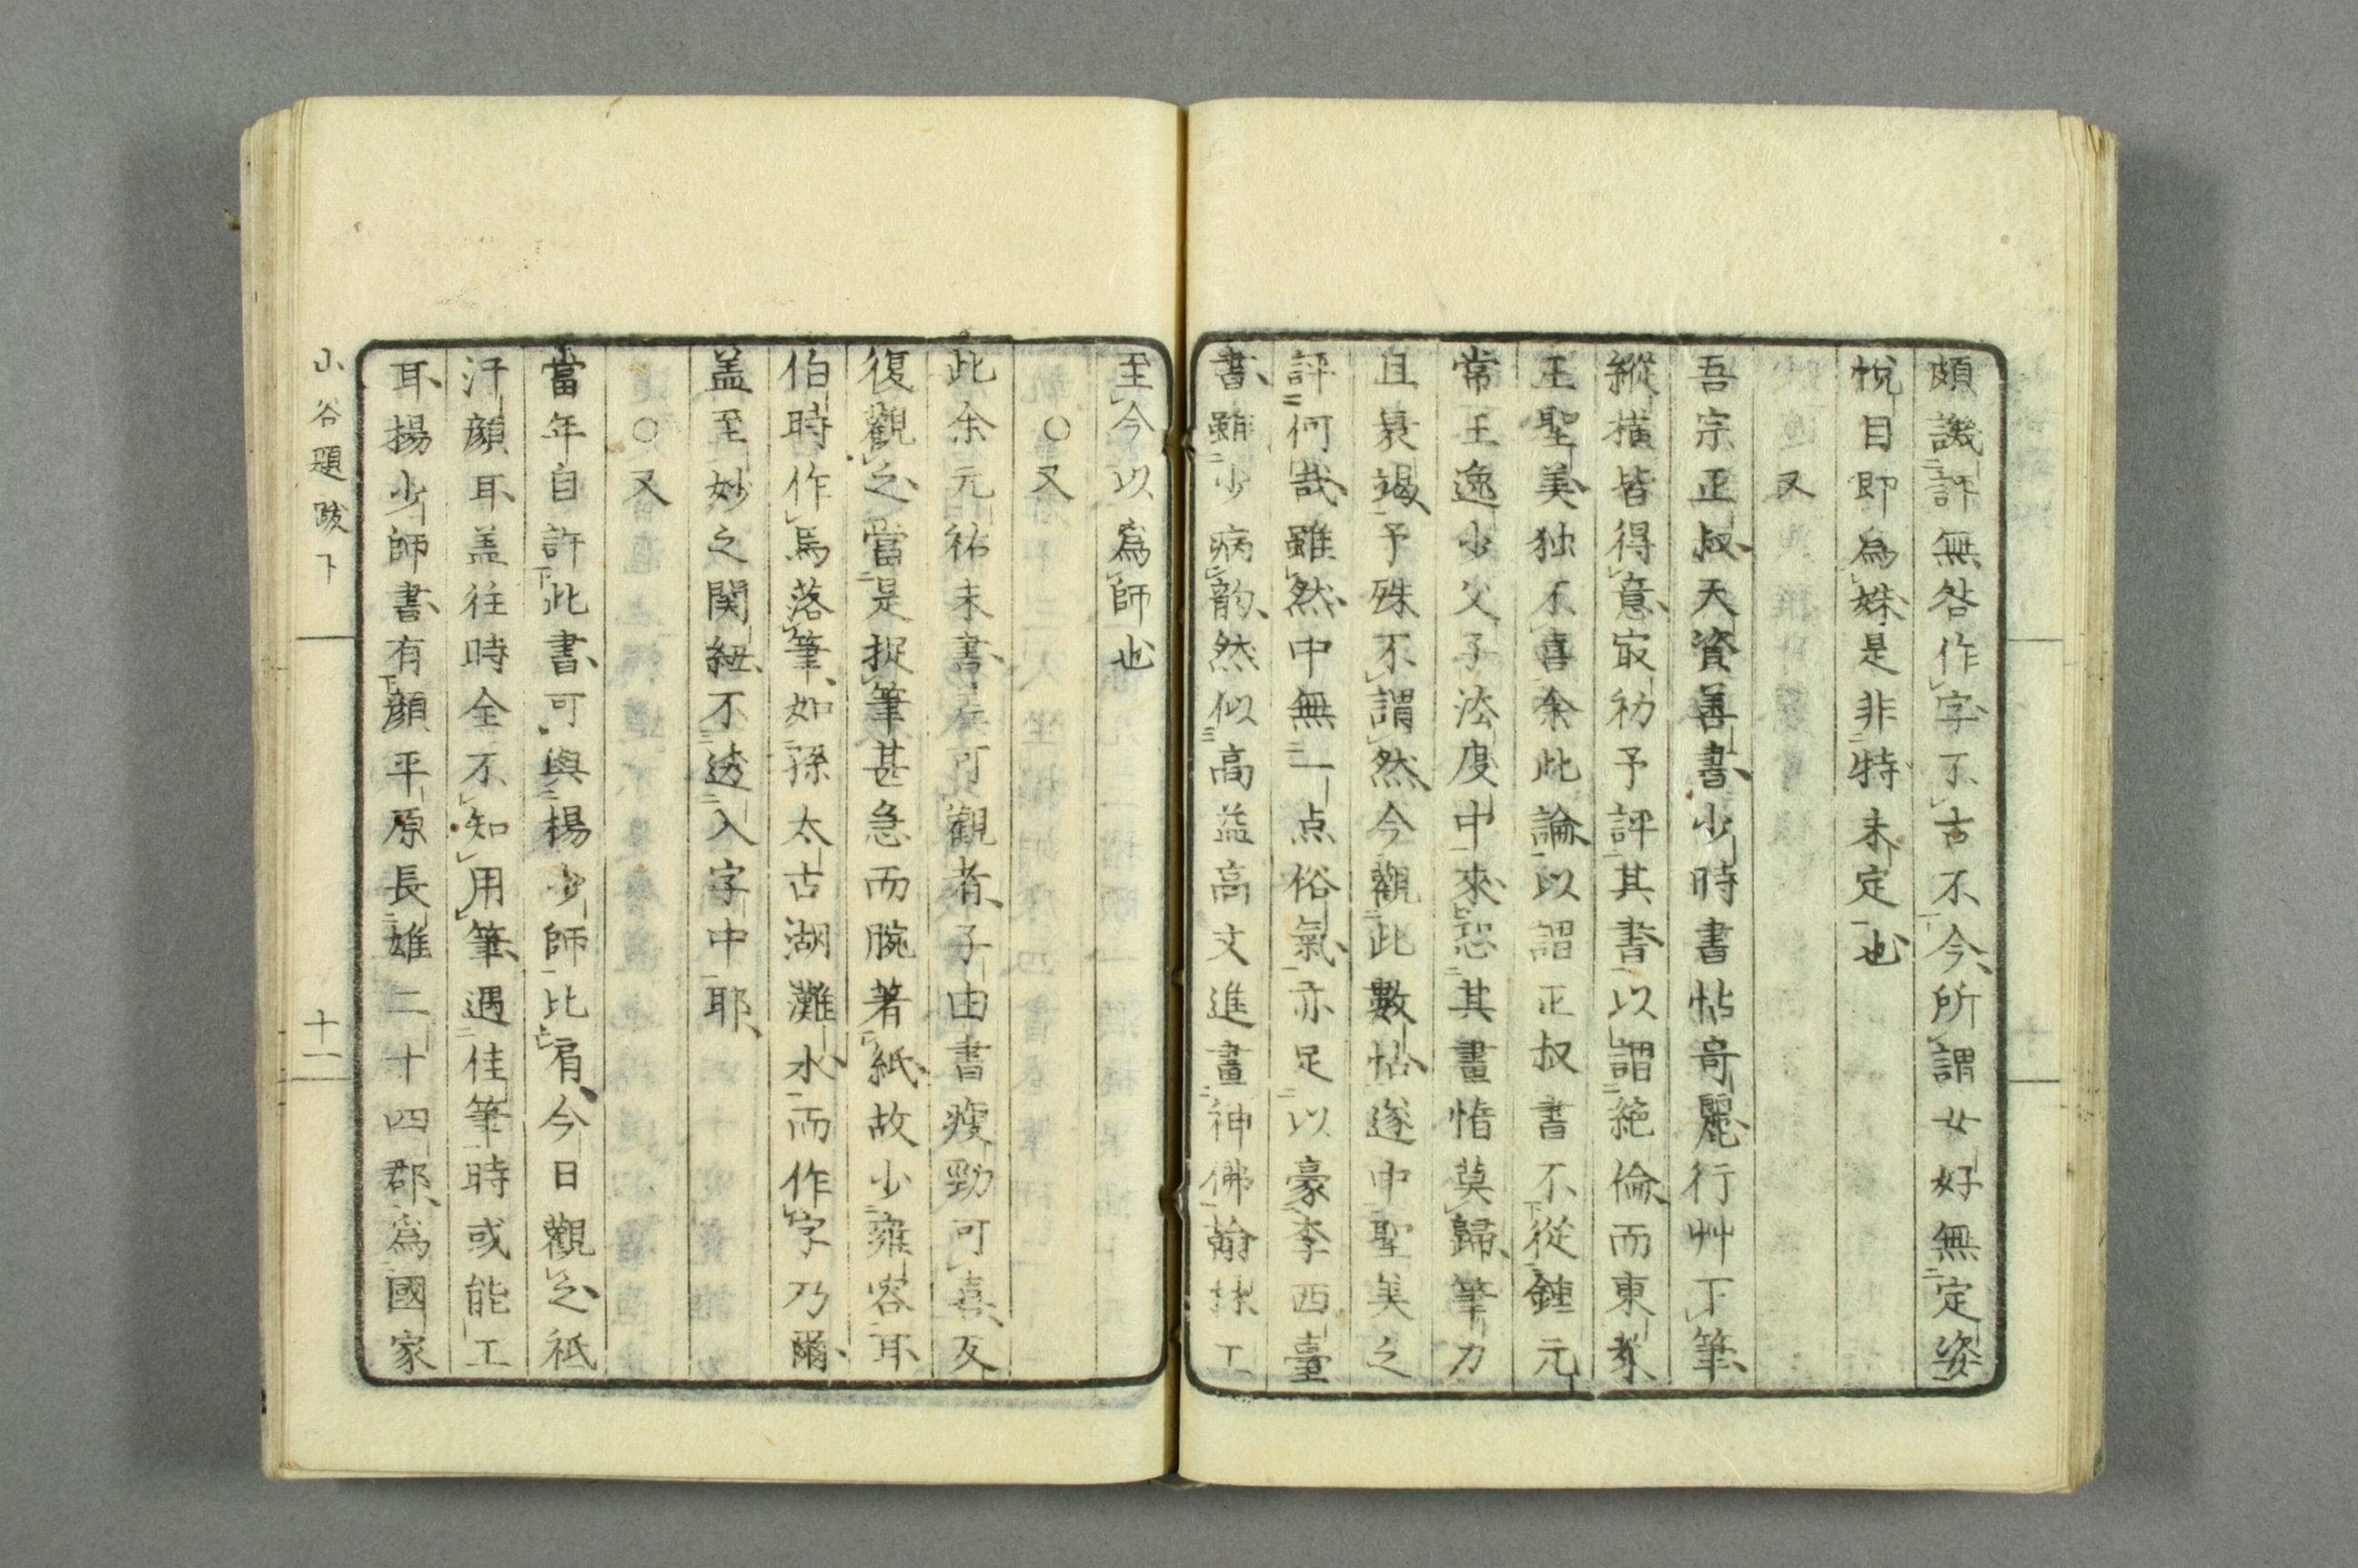 頗譏訶無咎作字不古不今所謂女好無定姿
悅目即為姝是非特未定也
又
吾宗正叔天資善書少時書帖竒麗行艸下筆
縱橫皆得意㝡初予評其書以謂絶倫而東萊
王聖美独不喜余此論以謂正叔書不從鍾元
常王逸少父子法度中來恐其畫惰莫歸筆力
且衰竭予殊不謂然今觀此數帖遂中聖美之
評何哉雖然中無一点俗氣亦足以豪李西臺
書雖少病韵然似高益高文進畫神佛翰林工
至今以為師也
○又
此余元祐末書差可觀者子由書瘦勁可喜反
復觀之當是捉筆甚急而腕著紙故少雍容耳
伯時作馬落筆如孫太古湖灘水而作字乃爾
盖至妙之関紐不透入字中耶
○又
當年自許此書可與楊少師比肩今日觀之祇
汗顔耳盖往時全不知用筆遇佳筆時或能工
耳揚少師書有顔平原長雄二十四郡為國家
山谷題跋下
十一